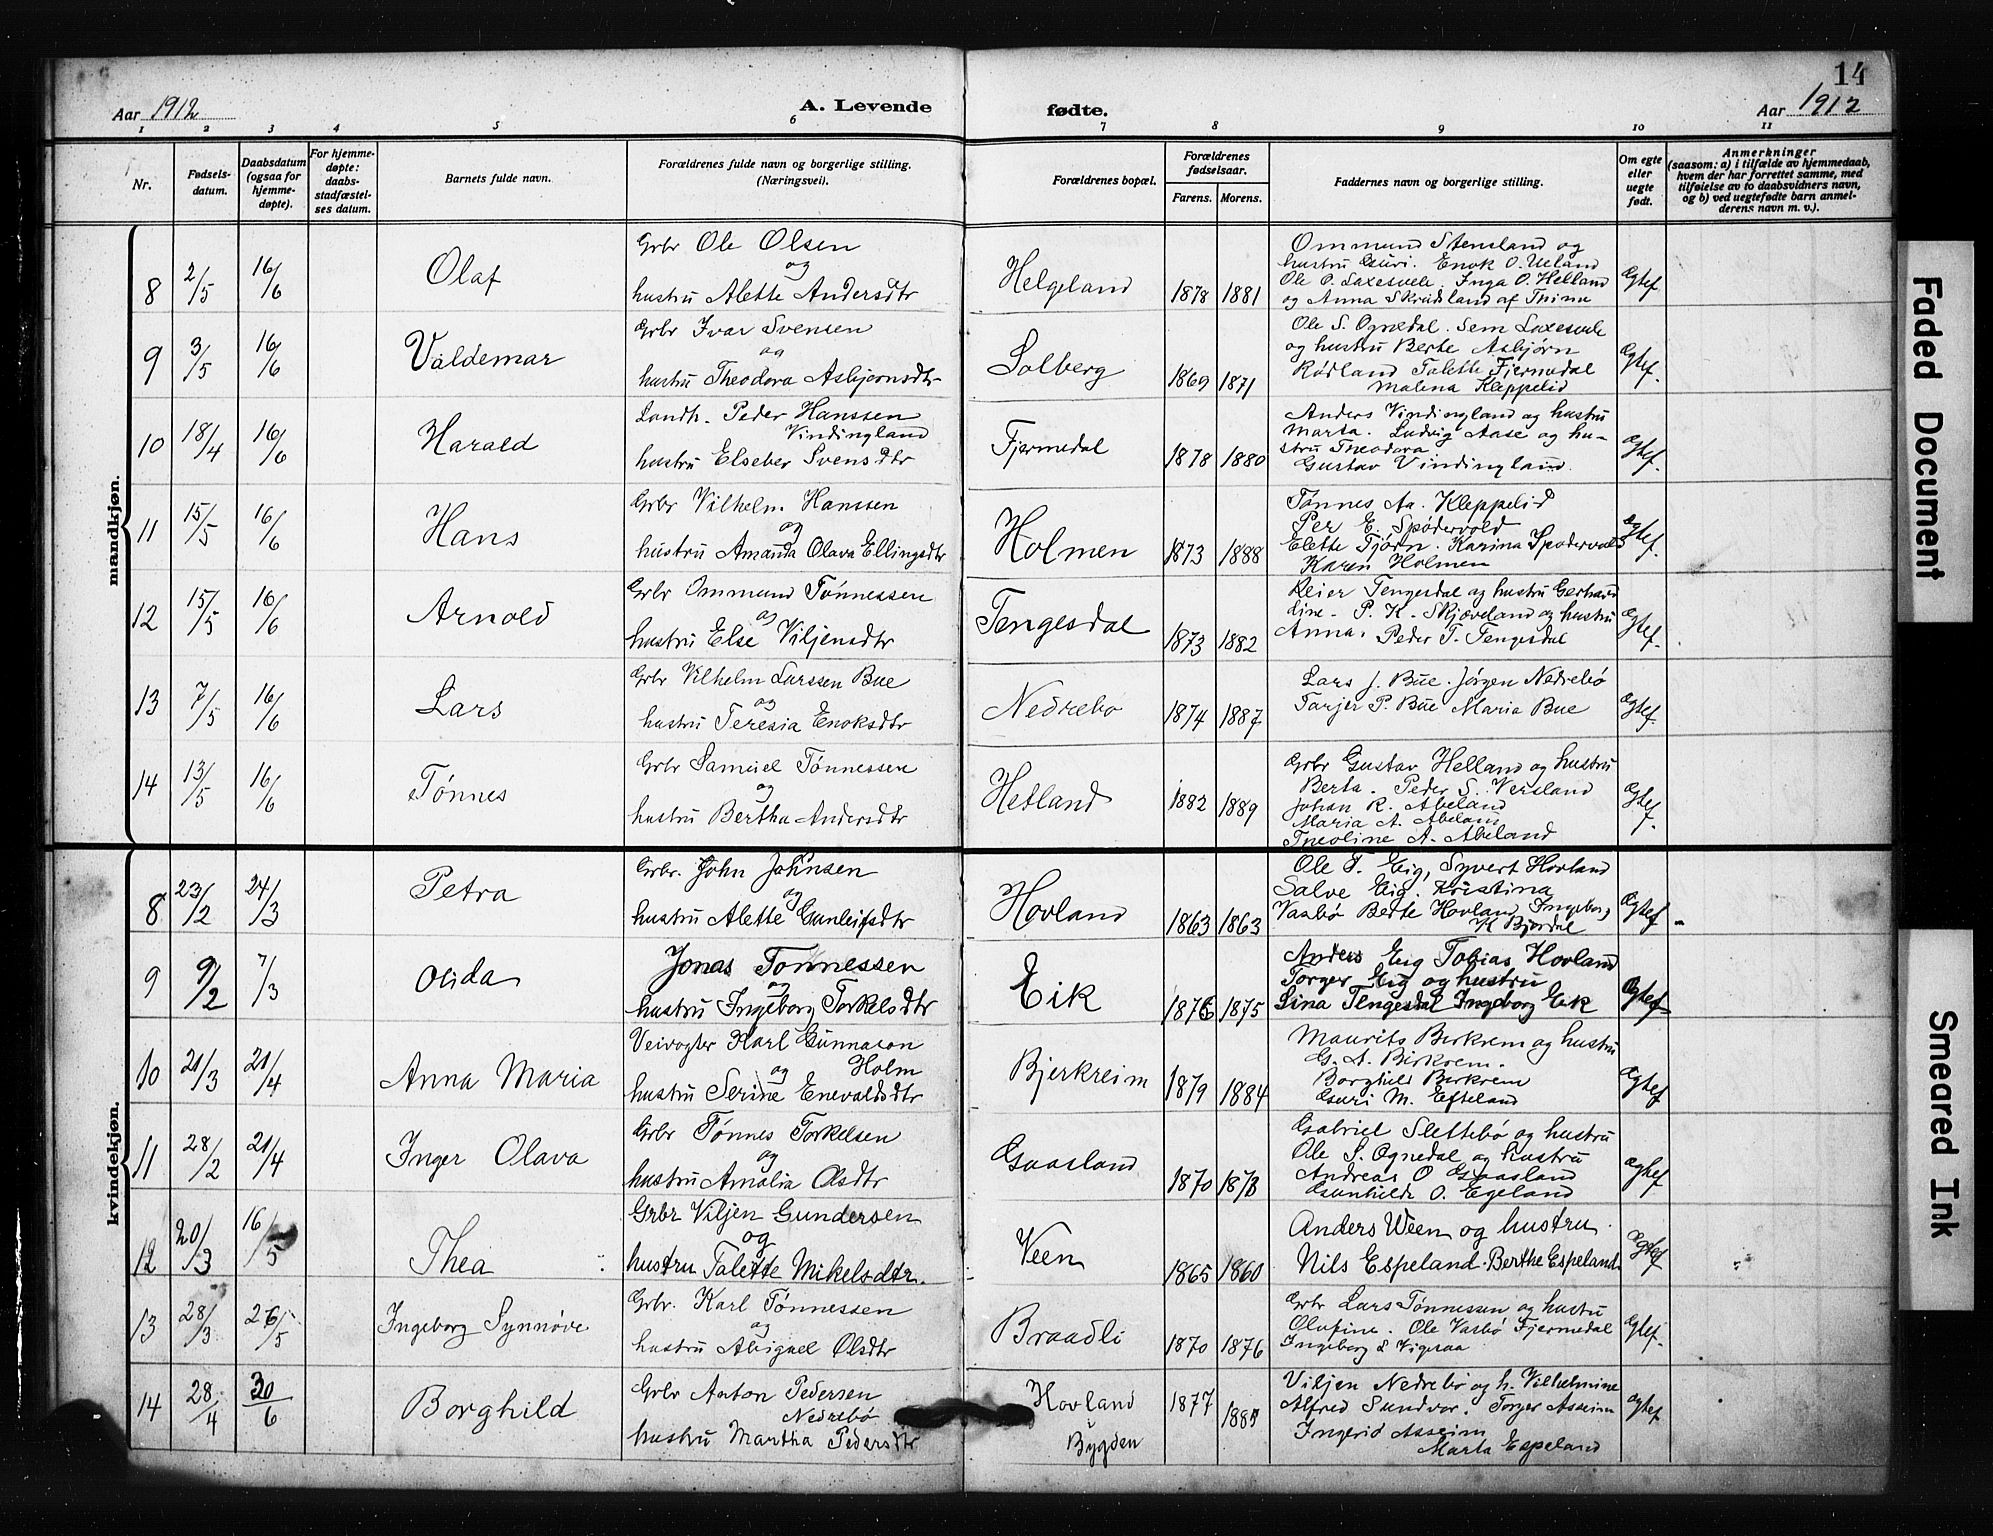 14
Aar 1912
A. Levende
fødte.
Aar 1912
1 2 3 4 5 6 7 8 9 10 11
Nr.
Fødsels-
datum.
Daabsdatum
(ogsaa for
hjemme-
døpte).
For hjemme-
døpte:
daabs-
stadfæstel-
ses datum.
Barnets fulde navn.
Forældrenes fulde navn og borgerlige stilling.
(Næringsvei).
Forældrenes bopæl.
Forældrenes
fødselsaar.
Farens. Morens.
Faddernes navn og borgerlige stilling.
Om egte
eller
uegte
født.
Anmerkninger
(saasom: a) i tilfælde av hjemmedaab,
hvem der har forrettet samme, med
tilføielse av to daabsvidners navn,
og b) ved uegtefødte barn anmel-
derens navn m. v.).
mandkjøn.
8 2/5 16/6 Olaf
Grbr Ole Olsen
og
hustru Alette Andersdtr
Helgeland 1878 1881
Ommund Stensland og
hustru Guri. Enok O. Ueland
Ole O. Laxesvele. Inga O. Helland
og Anna Skradland af Thime
Ægtef
9 3/5 16/6 Valdemar
Grbr Ivar Svensen
og
hustru Theodora Asbjørnsdtr
Solberg 1869 1871
Ole S. Ognedal. Sem Laxesvele
og hustru Berte Asbjørn
Rødland Talette Fjermedal
Malena Kleppelid
Ægtef.
10 18/4 16/6 Harald
Landh. Peder Hanssen
Vindingland
hustru Elseber Svensdtr
Fjermedal 1878 1880
Anders Vindingland og hustru
Marta. Ludvig Aase og hu-
stru Theodora
Gustav Vindingland.
Ægtef.
11 15/5 16/6 Hans
Grbr Vilhelm Hanssen
og
hustru Amanda Olava Ellingsdtr
Holmen 1873 1888
Tønnes Aa. Kleppelid
Per E. Spødervold
Elette Tjørn. Karina Spødervold
Karen Holmen
Ægtef.
12 15/5 16/6 Arnold
Grbr Ommund Tønnessen
og
hustru Else Viljensdtr
Tengesdal 1873 1882
Reier Tengesdal og hustru Gerhard
dine. P. K. Skjæveland og hustru
Anna. Peder T. Tengesdal
Ægtef.
13 7/5 16/6 Lars
Grbr Vilhelm Larssen Bue
og
hustru Teresia Enoksdtr
Nedrebø 1874 1887
Lars J. Bue. Jørgen Nedrebø
Tarjer P. Bue Maria Bue
Ægtef.
14 13/5 16/6 Tønnes
Grbr Samuel Tønnessen
og
hustru Bertha Andersdtr
Hetland 1882 1889
Grbr Gustav Helland og hustru
Berta. Peder S. Versland
Johan R. Abeland
Maria A. Abeland
Theoline A. Abeland
Ægtef.
kvindekjøn.
8 23/2 24/3 Petra
Grbr. John Johnsen
og
hustru Alette Gunleifsdtr
Hovland 1863 1863
Ole T. Eig, Syvert Hovland
Salve Eig. Kristina
Vasbø Berte Hovland Ingeborg
K Bjordal
Ægtef
9 9/2 7/3 Olida
Jonas Tønnessen
og
hustru Ingeborg Torkelsdtr
Eik 1876 1875
Anders Eig Tobias Hovland
Torger Eig og hustru
Lina Tengesdal Ingeborg Eik
Ægtef
10 21/3 21/4 Anna Maria
Veivogter Karl Gunnason
og Holm
hustru Serine Enevaldsdtr
Bjerkreim 1879 1884
Maurits Birkrem og hustru
G. A. Birkrem.
Borghild Birkrem
Guri M. Efteland
Ægtef
11 28/2 21/4 Inger Olava
Grbr Tønnes Torkelsen
og
hustru Amalia Olsdtr
Gaasland 1870 1873
Gabriel Slettebø og hustru
Ole S. Ognedal og hustru
Andreas O Gaasland
Gunhilde O. Egeland
ægtef
12 20/3 16/5 Thea
Grbr Viljen Gundersen
og
hustru Talette Mikelsdtr.
Veen 1865 1860
Anders Ween og hustru
Nils Espeland. Berthe Espeland.
Ægtef
13 28/3 26/5 Ingeborg Synnøve
Grbr. Karl Tønnessen
og
hustru Abiguel Olsdtr
Braadli 1870 1876
Grbr Lars Tønnessen og hustru
Olufine. Ole Vasbø Fjermedal
Ingeborg L Vigesaa
Ægtef.
14 28/4 30/6 Borghild
Grbr Anton Pedersen
Nedrebø
hustru Martha Pedersdtr
Hovland
Bygden
1877 1885
Viljen Nedrebø og h. Vilhelmine
Alfred Sundvor. Torger Asseim
Ingerid Asseim
Marta Espeland
ægtef
Faded Document
Smeared Ink